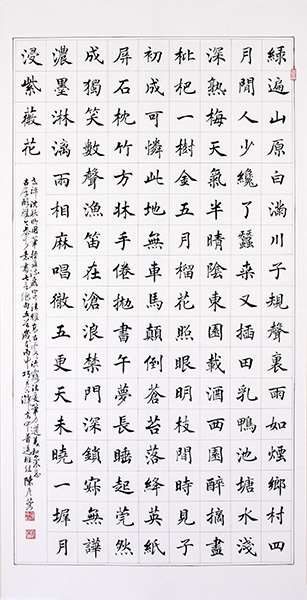 綠遍山原白滿川子規聲裏雨如煙鄉村四
月閒人少纔了蠶桑又插田乳鴨池塘水淺
深熟梅天氣半晴陰東園載酒西園醉摘盡
枇杷一樹金五月榴花照眼明枝間時見子
初成可憐此地無車馬顛倒蒼苔落絳英紙
屏石枕竹方牀手倦拋書午夢長睡起莞然
成獨笑數聲漁笛在滄浪禁門深鎖寂無譁
濃墨淋漓兩相麻唱徹五更天未曉一墀月
浸紫薇花